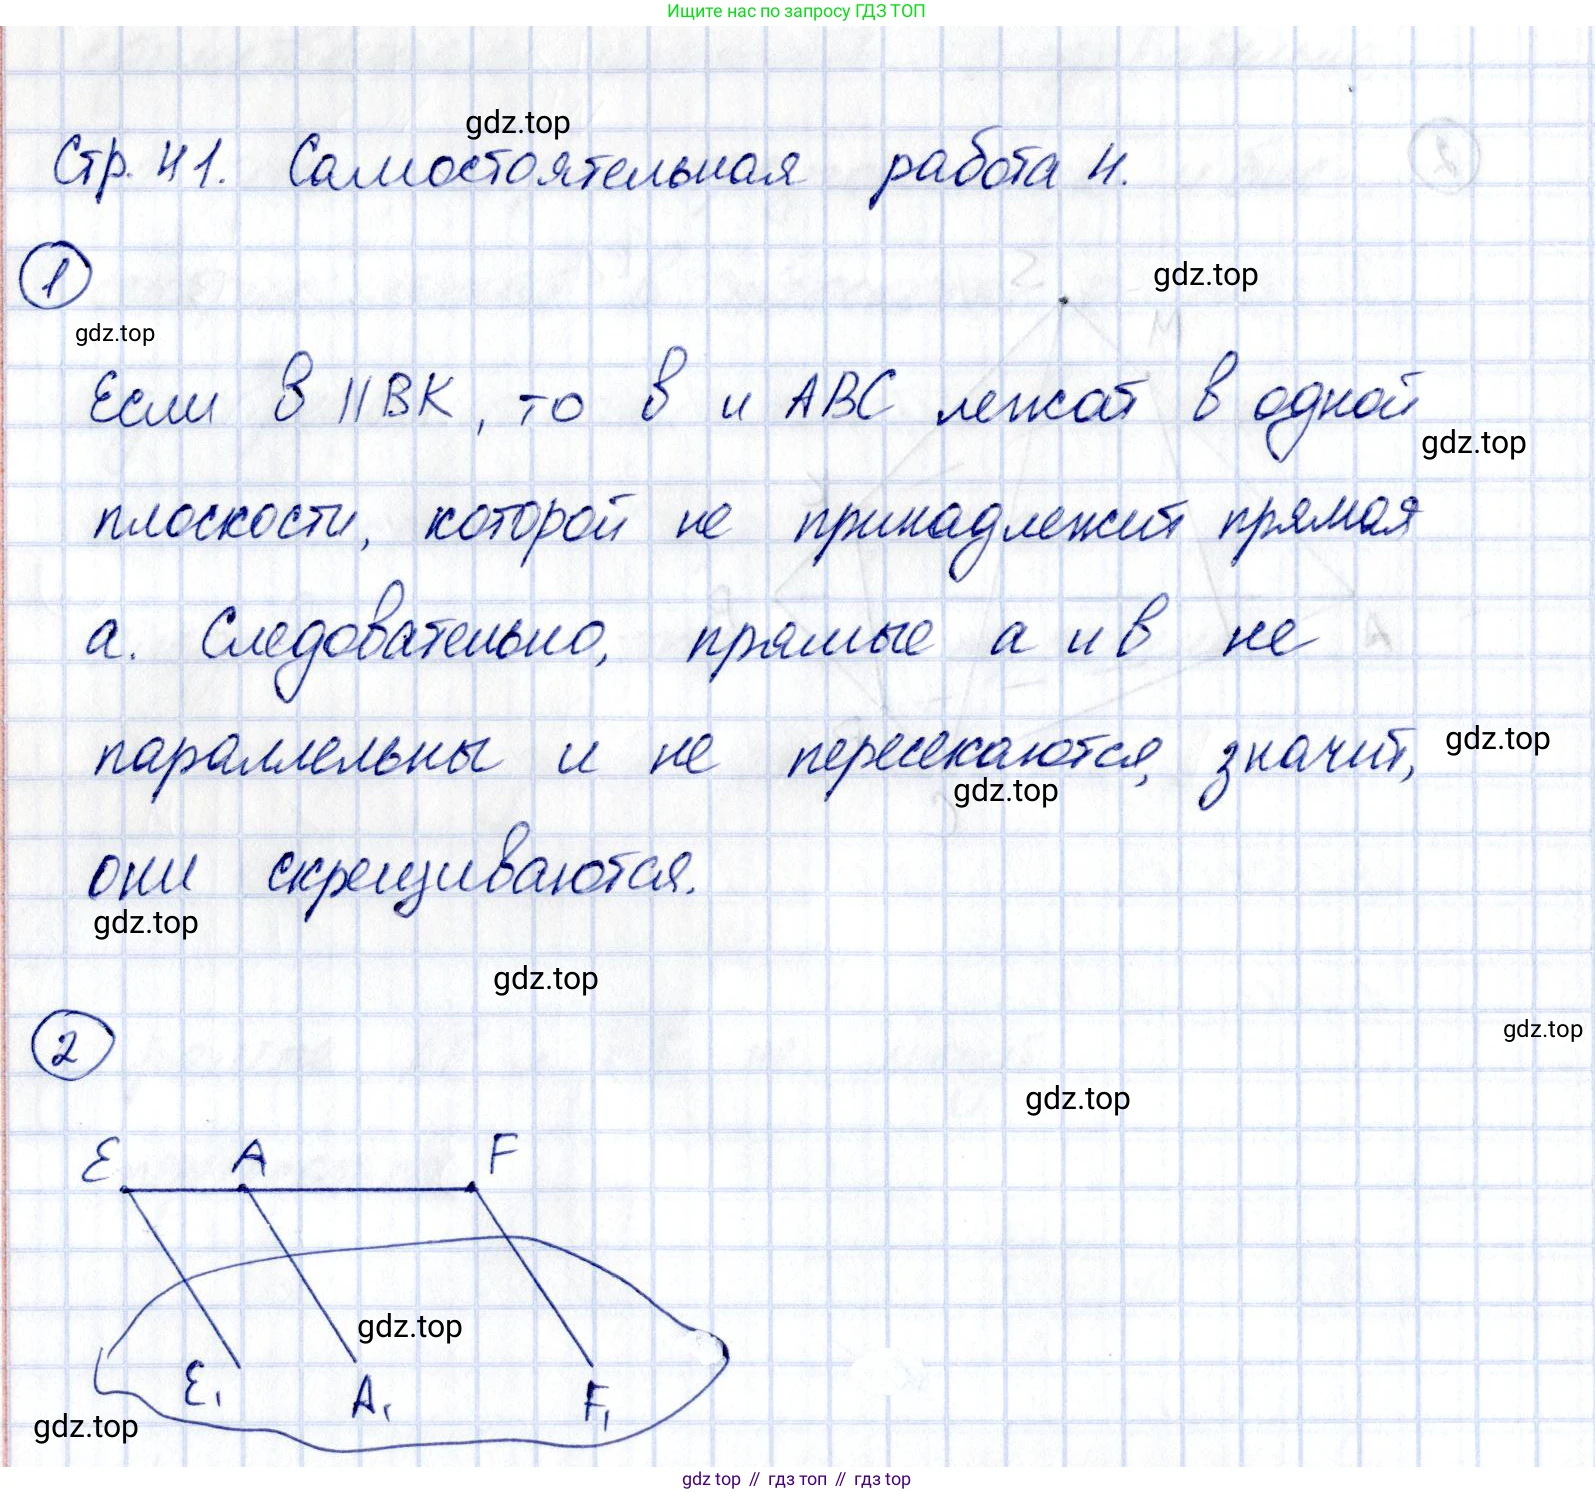 Ищите нас по запросу ГДЗ ТОП
gdz.top
Стр. 41. Самостоятельная работа 4.
1
gdz.top
gdz.top
Если в || ВК, то в и АВС лежат в одной
gdz.top
плоскости, которой не принадлежит прямая
а. Следовательно, прямые а и в не
параллельны и не пересекаются, значит,
gdz.top
gdz.top
они скрещиваются.
gdz.top
gdz.top
2
gdz.top
gdz.top
E A F
gdz.top
E₁ A₁ F₁
gdz.top
gdz top // гдз топ // гдз top